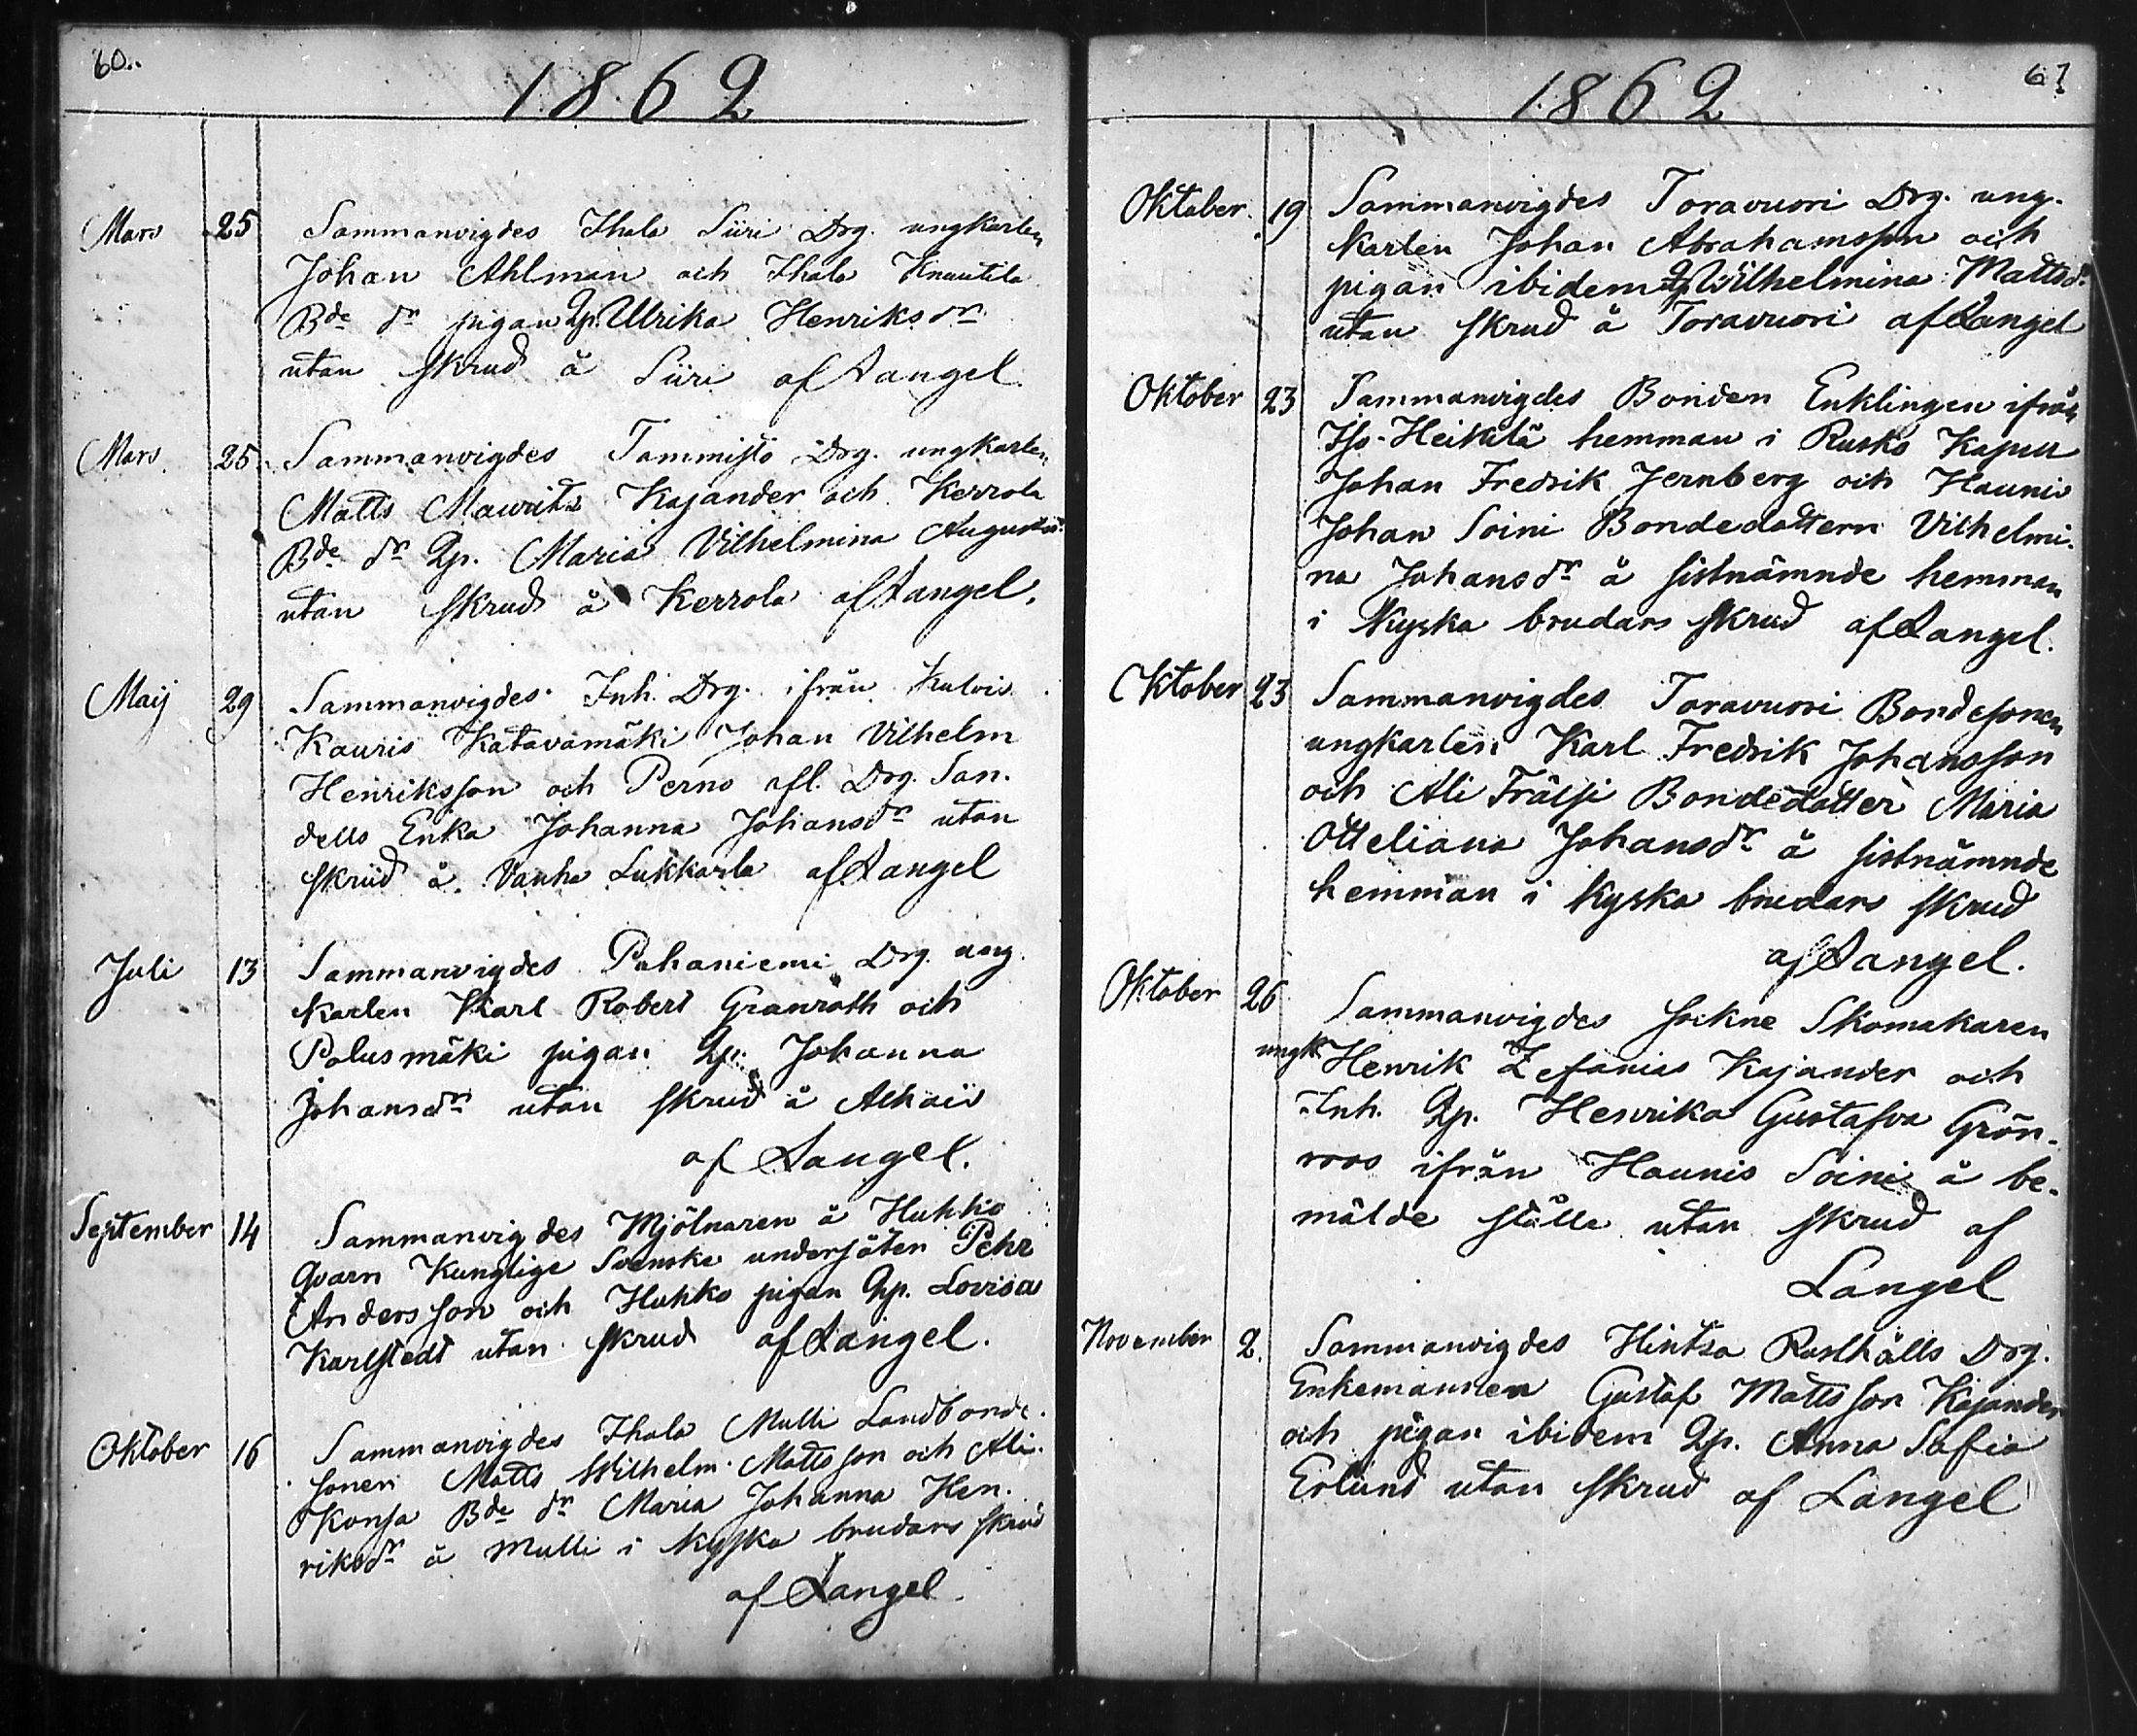 60.
1862
Mars 25 Sammanvigdes Ihala Siiri Drg. ungkarlen
Johan Ahlman och Ihala Knuutila
Bde dr pigan Qp. Ulrika Henriksdr
utan skrud å Siiri af Langel.
Mars 25 Sammanvigdes Tammisto Drg. ungkarlen
Matts Maurits Kajander och Kerrola
Bde dr Qp. Maria Vilhelmina
utan skrud å Kerrola af Langel.
Maij 29 Sammanvigdes Inh. Drg. ifrån
Kauris Katavamäki Johan Vilhelm
Henriksson och Perno afl. Drg. San-
dells Enka Johanna Johansdr utan
skrud å Vanha Lukkarla af Langel
Juli 13 Sammanvigdes Pahaniemi Drg. ung
karlen Karl Robert Granroth och
Polusmäki pigan Qp. Johanna
Johansdr utan skrud å
af Langel.
September 14 Sammanvigdes Mjölnaren å Hukko
Qvarn Kunglige Svenske undersåten Pehr
Andersson och Hukko pigan Qp. Lovisa
Karlstedt utan skrud af Langel.
Oktober 16 Sammanvigdes Ihala Mulli Landbonde-
sonen Matts Wilhelm Mattsson och Ali-
Konsa Bde dr Maria Johanna Hen-
riksdr å Mulli i kyska brudars skrud
af Langel.
61
1862
Oktober 19 Sammanvigdes Toravuori Drg. ung-
karlen Johan Abrahamsson och
pigan ibidem Qp Wilhelmina Mattsdr
utan skrud å Toravuori af Langel
Oktober 23 Sammanvigdes Bonden Enklingen ifrån
Iso-Heikilä hemman i Rusko Kapell
Johan Fredrik Jernberg och Haunis
Johan Soini Bondedottern Vilhelmi-
na Johansdr å sistnämnde hemman
i Kyska brudars skrud af Langel.
Oktober 23 Sammanvigdes Toravuori Bondesonen
ungkarlen Karl Fredrik Johansson
och Ali Frälsi Bondedotter Maria
Otteliana Johansdr å sistnämnde
hemman i kyska brudars skrud
af Langel.
Oktober 26 Sammanvigdes Sockne Skomakaren
ungk. Henrik Zefanias Kajander och
Inh. Qp. Henrika Gustafva Grön-
roos ifrån Haunis Soini å be-
mälde ställe utan skrud af
Langel
November 2. Sammanvigdes Hintsa Rusthålls Drg.
Enkemannen Gustaf Mattsson Kajander
och pigan ibidem Qp. Anna Sofia
Erlund utan skrud af Langel